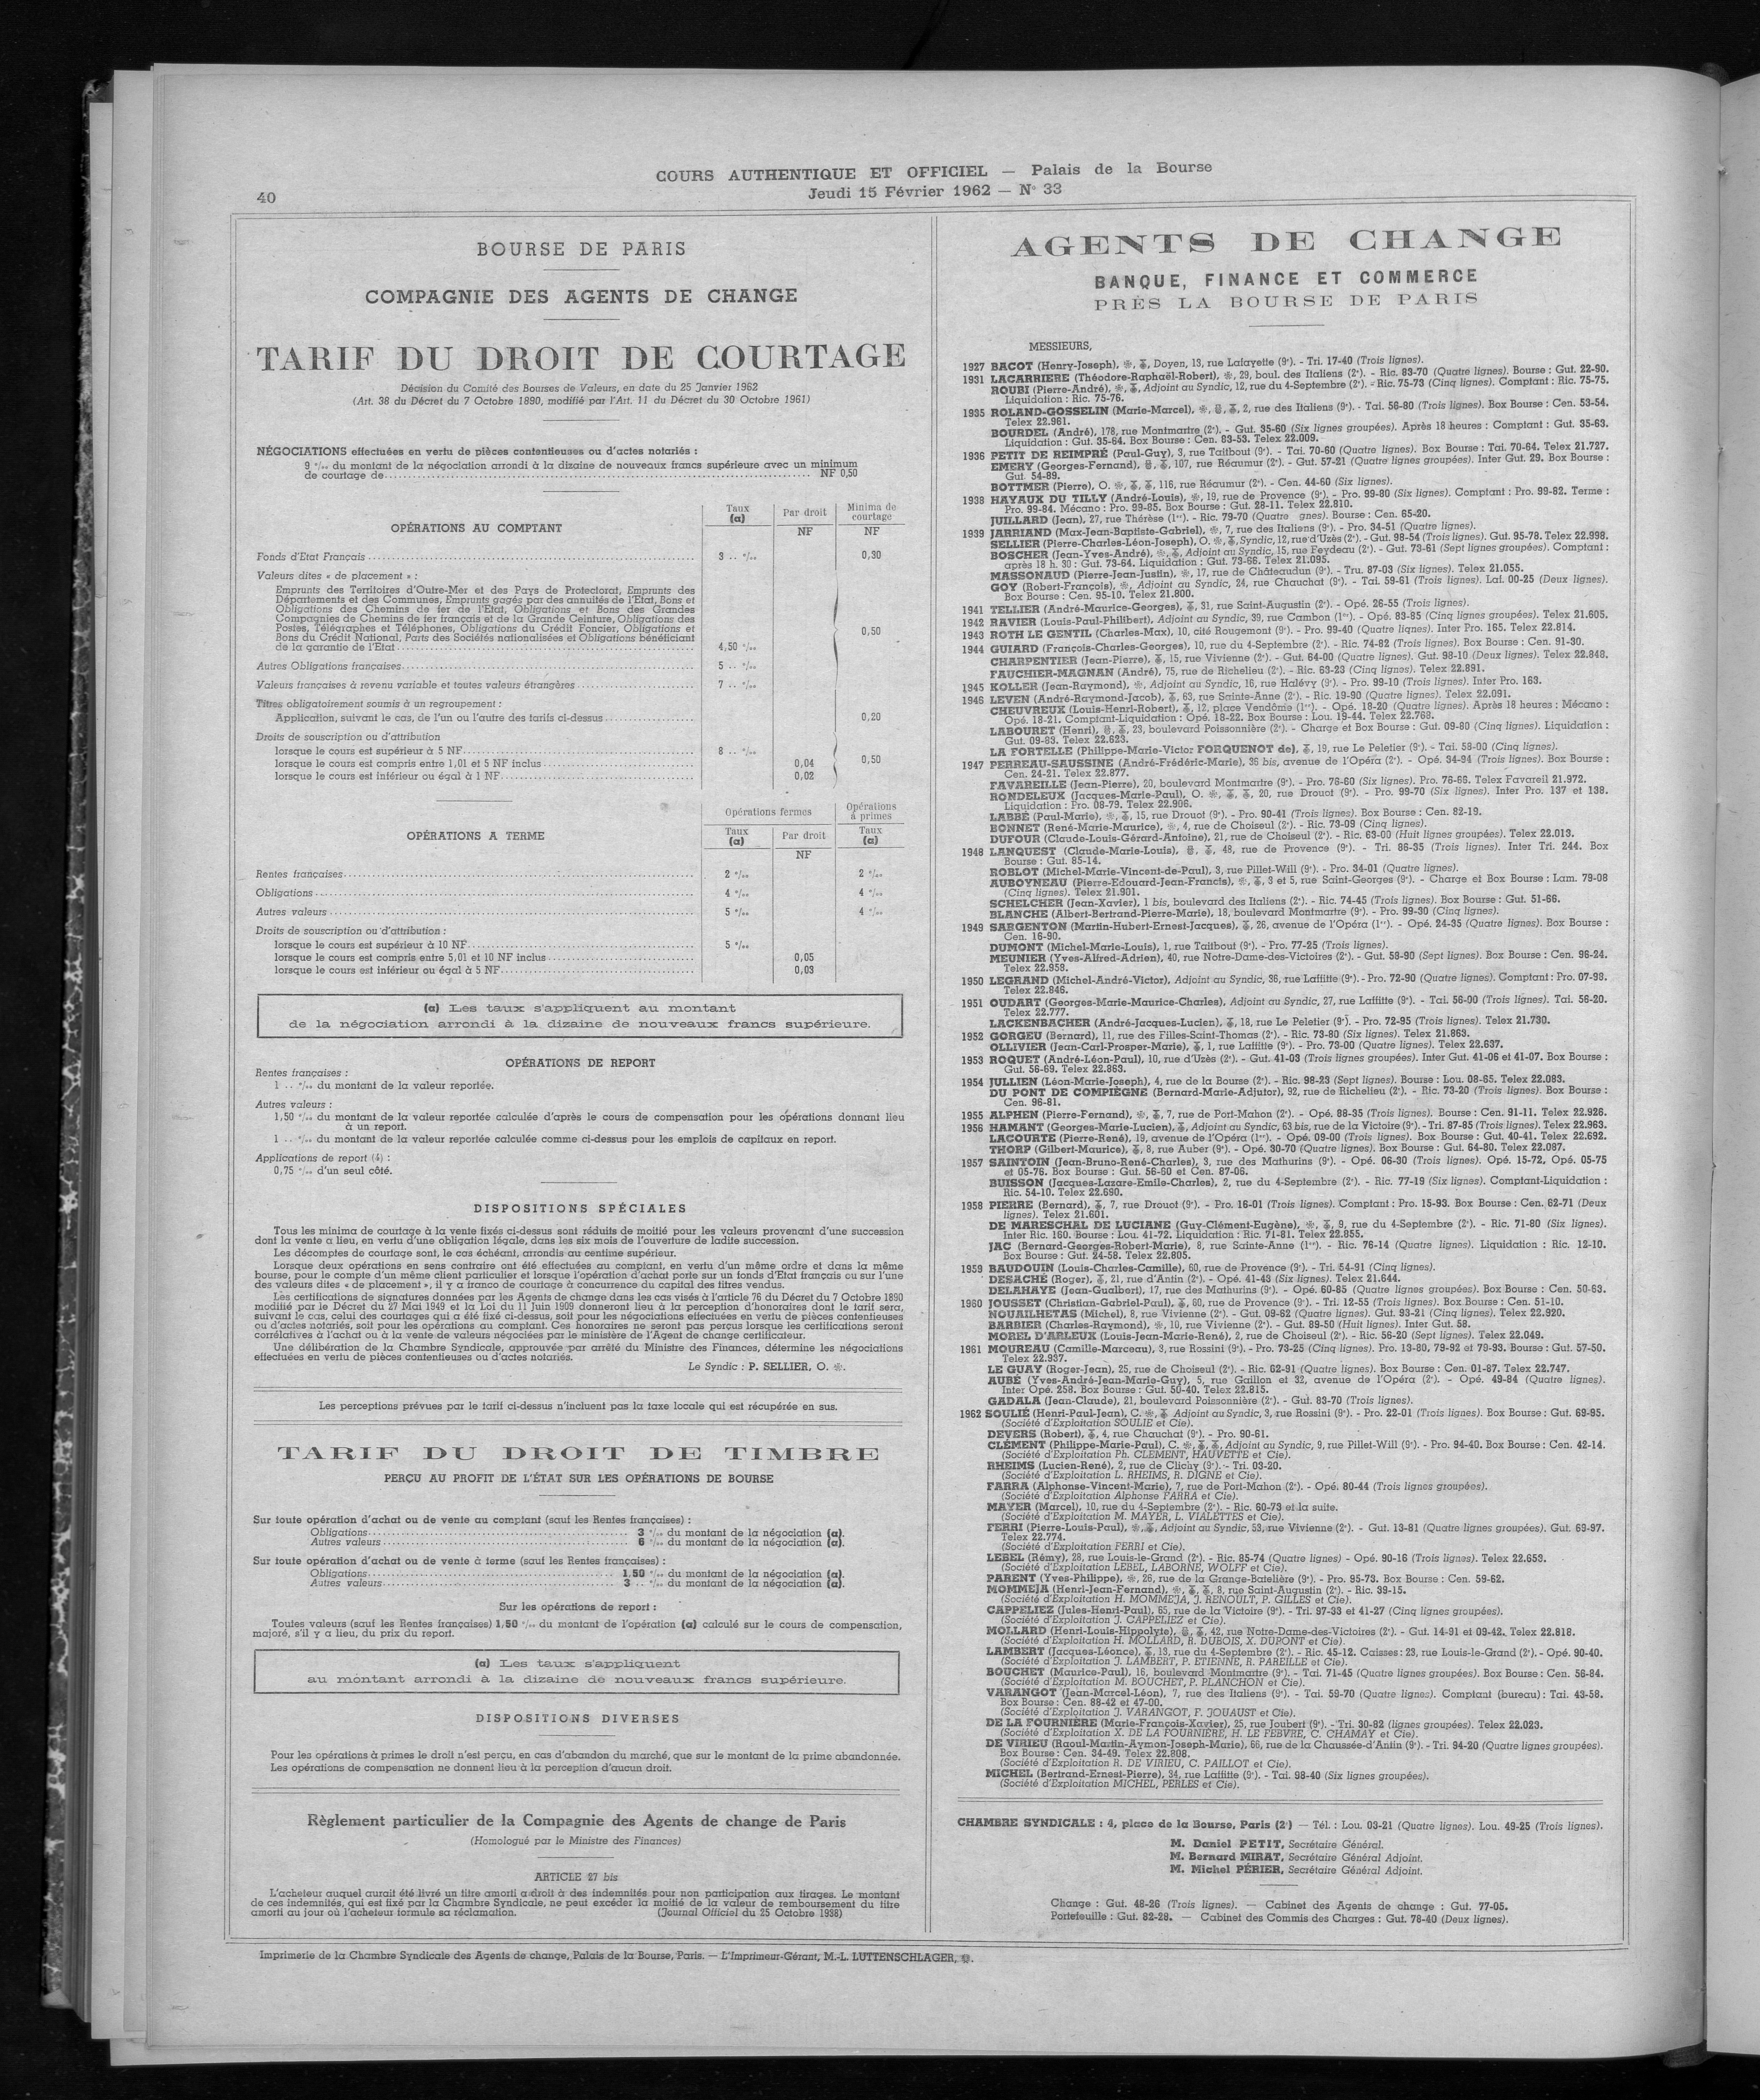 40
COURS AUTHENTIQUE ET OFFICIEL — Palais de la Bourse
Jeudi 15 Février 1962 — N° 33
BOURSE DE PARIS
COMPAGNIE DES AGENTS DE CHANGE
TARIF DU DROIT DE COURTAGE
Décision du Comité des Bourses de Valeurs, en date du 25 Janvier 1962
(Art. 38 du Décret du 7 Octobre 1890, modifié par l'Art. 11 du Décret du 30 Octobre 1961)
NÉGOCIATIONS effectuées en vertu de pièces contentieuses ou d'actes notariés :
9 °/°° du montant de la négociation arrondi à la dizaine de nouveaux francs supérieure avec un minimum
de courtage de.......... NF 0,50
OPÉRATIONS AU COMPTANT
Taux (a) | Par droit | Minima de courtage
NF | NF
Fonds d'Etat Français.......... 3 .. °/°° 0,30
Valeurs dites « de placement » :
Emprunts des Territoires d'Outre-Mer et des Pays de Protectorat, Emprunts des
Départements et des Communes, Emprunts gagés par des annuités de l'Etat, Bons et
Obligations des Chemins de fer de l'Etat, Obligations et Bons des Grandes
Compagnies de Chemins de fer français et de la Grande Ceinture, Obligations des
Postes, Télégraphes et Téléphones, Obligations du Crédit Foncier, Obligations et
Bons du Crédit National, Parts des Sociétés nationalisées et Obligations bénéficiant
de la garantie de l'Etat.......... 4,50 °/°° 0,50
Autres Obligations françaises.......... 5 .. °/°°
Valeurs françaises à revenu variable et toutes valeurs étrangères.......... 7 .. °/°°
Titres obligatoirement soumis à un regroupement :
Application, suivant le cas, de l'un ou l'autre des tarifs ci-dessus.......... 0,20
Droits de souscription ou d'attribution
lorsque le cours est supérieur à 5 NF.......... 8 .. °/°°
lorsque le cours est compris entre 1,01 et 5 NF inclus.......... 0,04 0,50
lorsque le cours est inférieur ou égal à 1 NF.......... 0,02
OPÉRATIONS A TERME
Opérations fermes | Opérations à primes
Taux (a) | Par droit | Taux (a)
NF
Rentes françaises.......... 2 °/°° 2 °/°°
Obligations.......... 4 °/°° 4 °/°°
Autres valeurs.......... 5 °/°° 4 °/°°
Droits de souscription ou d'attribution :
lorsque le cours est supérieur à 10 NF.......... 5 °/°°
lorsque le cours est compris entre 5,01 et 10 NF inclus.......... 0,05
lorsque le cours est inférieur ou égal à 5 NF.......... 0,03
(a) Les taux s'appliquent au montant
de la négociation arrondi à la dizaine de nouveaux francs supérieure.
OPÉRATIONS DE REPORT
Rentes françaises :
1 .. °/°° du montant de la valeur reportée.
Autres valeurs :
1,50 °/°° du montant de la valeur reportée calculée d'après le cours de compensation pour les opérations donnant lieu
à un report.
1 .. °/°° du montant de la valeur reportée calculée comme ci-dessus pour les emplois de capitaux en report.
Applications de report (4) :
0,75 °/°° d'un seul côté.
DISPOSITIONS SPÉCIALES
Tous les minima de courtage à la vente fixés ci-dessus sont réduits de moitié pour les valeurs provenant d'une succession
dont la vente a lieu, en vertu d'une obligation légale, dans les six mois de l'ouverture de ladite succession.
Les décomptes de courtage sont, le cas échéant, arrondis au centime supérieur.
Lorsque deux opérations en sens contraire ont été effectuées au comptant, en vertu d'un même ordre et dans la même
bourse, pour le compte d'un même client particulier et lorsque l'opération d'achat porte sur un fonds d'Etat français ou sur l'une
des valeurs dites « de placement », il y a franco de courtage à concurrence du capital des titres vendus.
Les certifications de signatures données par les Agents de change dans les cas visés à l'article 76 du Décret du 7 Octobre 1890
modifié par le Décret du 27 Mai 1949 et la Loi du 11 Juin 1909 donneront lieu à la perception d'honoraires dont le tarif sera,
suivant le cas, celui des courtages qui a été fixé ci-dessus, soit pour les négociations effectuées en vertu de pièces contentieuses
ou d'actes notariés, soit pour les opérations au comptant. Ces honoraires ne seront pas perçus lorsque les certifications seront
corrélatives à l'achat ou à la vente de valeurs négociées par le ministère de l'Agent de change certificateur.
Une délibération de la Chambre Syndicale, approuvée par arrêté du Ministre des Finances, détermine les négociations
effectuées en vertu de pièces contentieuses ou d'actes notariés.
Le Syndic : P. SELLIER, O. ❀.
Les perceptions prévues par le tarif ci-dessus n'incluent pas la taxe locale qui est récupérée en sus.
TARIF DU DROIT DE TIMBRE
PERÇU AU PROFIT DE L'ÉTAT SUR LES OPÉRATIONS DE BOURSE
Sur toute opération d'achat ou de vente au comptant (sauf les Rentes françaises) :
Obligations.......... 3 °/°° du montant de la négociation (a).
Autres valeurs.......... 6 °/°° du montant de la négociation (a).
Sur toute opération d'achat ou de vente à terme (sauf les Rentes françaises) :
Obligations.......... 1,50 °/°° du montant de la négociation (a).
Autres valeurs.......... 3 .. °/°° du montant de la négociation (a).
Sur les opérations de report :
Toutes valeurs (sauf les Rentes françaises) 1,50 °/°° du montant de l'opération (a) calculé sur le cours de compensation,
majoré, s'il y a lieu, du prix du report.
(a) Les taux s'appliquent
au montant arrondi à la dizaine de nouveaux francs supérieure.
DISPOSITIONS DIVERSES
Pour les opérations à primes le droit n'est perçu, en cas d'abandon du marché, que sur le montant de la prime abandonnée.
Les opérations de compensation ne donnent lieu à la perception d'aucun droit.
Règlement particulier de la Compagnie des Agents de change de Paris
(Homologué par le Ministre des Finances)
ARTICLE 27 bis
L'acheteur auquel aurait été livré un titre amorti a droit à des indemnités pour non participation aux tirages. Le montant
de ces indemnités, qui est fixé par la Chambre Syndicale, ne peut excéder la moitié de la valeur de remboursement du titre
amorti au jour où l'acheteur formule sa réclamation. (Journal Officiel du 25 Octobre 1938)
AGENTS DE CHANGE
BANQUE, FINANCE ET COMMERCE
PRÈS LA BOURSE DE PARIS
MESSIEURS,
1927 BACOT (Henry-Joseph), ❀, Doyen, 13, rue Lafayette (9e). - Tri. 17-40 (Trois lignes).
1931 LACARRIERE (Théodore-Raphaël-Robert), ❀, 29, boul. des Italiens (2e). - Ric. 83-70 (Quatre lignes). Bourse : Gut. 22-90.
ROUBI (Pierre-André), ❀, Adjoint au Syndic, 12, rue du 4-Septembre (2e). - Ric. 75-73 (Cinq lignes). Comptant : Ric. 75-75.
Liquidation : Ric. 75-76.
1935 ROLAND-GOSSELIN (Marie-Marcel), ❀, 2, rue des Italiens (9e). - Tai. 56-80 (Trois lignes). Box Bourse : Cen. 53-54.
Telex 22.961.
BOURDEL (André), 178, rue Montmartre (2e). - Gut. 35-60 (Six lignes groupées). Après 18 heures : Comptant : Gut. 35-63.
Liquidation : Gut. 35-64. Box Bourse : Cen. 83-53. Telex 22.009.
1936 PETIT DE REIMPRÉ (Paul-Guy), 3, rue Taitbout (9e). - Tai. 70-60 (Quatre lignes). Box Bourse : Tai. 70-64. Telex 21.727.
EMERY (Georges-Fernand), 107, rue Réaumur (2e). - Gut. 57-21 (Quatre lignes groupées). Inter Gut. 29. Box Bourse :
Gut. 54-89.
BOTTMER (Pierre), O. ❀, 116, rue Réaumur (2e). - Cen. 44-60 (Six lignes).
1938 HAYAUX DU TILLY (André-Louis), ❀, 19, rue de Provence (9e). - Pro. 99-80 (Six lignes). Comptant : Pro. 99-82. Terme :
Pro. 99-84. Mécano : Pro. 99-85. Box Bourse : Gut. 28-11. Telex 22.810.
JUILLARD (Jean), 27, rue Thérèse (1er). - Ric. 79-70 (Quatre gnes). Bourse : Cen. 65-20.
1939 JARRIAND (Max-Jean-Baptiste-Gabriel), ❀, 7, rue des Italiens (9e). - Pro. 34-51 (Quatre lignes).
SELLIER (Pierre-Charles-Léon-Joseph), O. ❀, Syndic, 12, rue d'Uzès (2e). - Gut. 98-54 (Trois lignes). Gut. 95-78. Telex 22.998.
BOSCHER (Jean-Yves-André), ❀, Adjoint au Syndic, 15, rue Feydeau (2e). - Gut. 73-61 (Sept lignes groupées). Comptant :
après 18 h. 30 : Gut. 73-64. Liquidation : Gut. 73-66. Telex 21.095.
MASSONAUD (Pierre-Jean-Justin), ❀, 17, rue de Châteaudun (9e). - Tru. 87-03 (Six lignes). Telex 21.055.
GOY (Robert-François), ❀, Adjoint au Syndic, 24, rue Chauchat (9e). - Tai. 59-61 (Trois lignes). Laf. 00-25 (Deux lignes).
Box Bourse : Cen. 95-10. Telex 21.800.
1941 TELLIER (André-Maurice-Georges), 31, rue Saint-Augustin (2e). - Opé. 26-55 (Trois lignes).
1942 RAVIER (Louis-Paul-Philibert), Adjoint au Syndic, 39, rue Cambon (1er). - Opé. 83-85 (Cinq lignes groupées). Telex 21.605.
1943 ROTH LE GENTIL (Charles-Max), 10, cité Rougemont (9e). - Pro. 99-40 (Quatre lignes). Inter Pro. 165. Telex 22.814.
1944 GUIARD (François-Charles-Georges), 10, rue du 4-Septembre (2e). - Ric. 74-82 (Trois lignes). Box Bourse : Cen. 91-30.
CHARPENTIER (Jean-Pierre), 15, rue Vivienne (2e). - Gut. 64-00 (Quatre lignes). Gut. 98-10 (Deux lignes). Telex 22.848.
FAUCHIER-MAGNAN (André), 75, rue de Richelieu (2e). - Ric. 63-23 (Cinq lignes). Telex 22.891.
1945 KOLLER (Jean-Raymond), ❀, Adjoint au Syndic, 16, rue Halévy (9e). - Pro. 99-10 (Trois lignes). Inter Pro. 163.
1946 LEVEN (André-Raymond-Jacob), 63, rue Sainte-Anne (2e). - Ric. 19-90 (Quatre lignes). Telex 22.091.
CHEUVREUX (Louis-Henri-Robert), 12, place Vendôme (1er). - Opé. 18-20 (Quatre lignes). Après 18 heures : Mécano :
Opé. 18-21. Comptant-Liquidation : Opé. 18-22. Box Bourse : Lou. 19-44. Telex 22.768.
LABOURET (Henri), 23, boulevard Poissonnière (2e). - Charge et Box Bourse : Gut. 09-80 (Cinq lignes). Liquidation :
Gut. 09-83. Telex 22.623.
LA FORTELLE (Philippe-Marie-Victor FORQUENOT de), 19, rue Le Peletier (9e). - Tai. 58-00 (Cinq lignes).
1947 PERREAU-SAUSSINE (André-Frédéric-Marie), 36 bis, avenue de l'Opéra (2e). - Opé. 34-94 (Trois lignes). Box Bourse :
Cen. 24-21. Telex 22.877.
FAVAREILLE (Jean-Pierre), 20, boulevard Montmartre (9e). - Pro. 76-60 (Six lignes). Pro. 76-66. Telex Favareil 21.972.
RONDELEUX (Jacques-Marie-Paul), O. ❀, 20, rue Drouot (9e). - Pro. 99-70 (Six lignes). Inter Pro. 137 et 138.
Liquidation : Pro. 08-79. Telex 22.906.
LABBÉ (Paul-Marie), ❀, 15, rue Drouot (9e). - Pro. 90-41 (Trois lignes). Box Bourse : Cen. 82-19.
BONNET (René-Marie-Maurice), ❀, 4, rue de Choiseul (2e). - Ric. 73-09 (Cinq lignes).
DUFOUR (Claude-Louis-Gérard-Antoine), 21, rue de Choiseul (2e). - Ric. 63-00 (Huit lignes groupées). Telex 22.013.
1948 LANQUEST (Claude-Marie-Louis), 48, rue de Provence (9e). - Tri. 86-35 (Trois lignes). Inter Tri. 244. Box
Bourse : Gut. 85-14.
ROBLOT (Michel-Marie-Vincent-de-Paul), 3, rue Pillet-Will (9e). - Pro. 34-01 (Quatre lignes).
AUBOYNEAU (Pierre-Edouard-Jean-Francis), ❀, 3 et 5, rue Saint-Georges (9e). - Charge et Box Bourse : Lam. 79-08
(Cinq lignes). Telex 21.901.
SCHELCHER (Jean-Xavier), 1 bis, boulevard des Italiens (2e). - Ric. 74-45 (Trois lignes). Box Bourse : Gut. 51-66.
BLANCHE (Albert-Bertrand-Pierre-Marie), 18, boulevard Montmartre (9e). - Pro. 99-30 (Cinq lignes).
1949 SARGENTON (Martin-Hubert-Ernest-Jacques), 26, avenue de l'Opéra (1er). - Opé. 24-35 (Quatre lignes). Box Bourse :
Cen. 16-90.
DUMONT (Michel-Marie-Louis), 1, rue Taitbout (9e). - Pro. 77-25 (Trois lignes).
MEUNIER (Yves-Alfred-Adrien), 40, rue Notre-Dame-des-Victoires (2e). - Gut. 58-90 (Sept lignes). Box Bourse : Cen. 96-24.
Telex 22.958.
1950 LEGRAND (Michel-André-Victor), Adjoint au Syndic, 36, rue Laffitte (9e). - Pro. 72-90 (Quatre lignes). Comptant : Pro. 07-98.
Telex 22.846.
1951 OUDART (Georges-Marie-Maurice-Charles), Adjoint au Syndic, 27, rue Laffitte (9e). - Tai. 56-00 (Trois lignes). Tai. 56-20.
Telex 22.777.
LACKENBACHER (André-Jacques-Lucien), 18, rue Le Peletier (9e). - Pro. 72-95 (Trois lignes). Telex 21.730.
1952 GORGEU (Bernard), 11, rue des Filles-Saint-Thomas (2e). - Ric. 73-80 (Six lignes). Telex 21.863.
OLLIVIER (Jean-Carl-Prosper-Marie), 1, rue Laffitte (9e). - Pro. 73-00 (Quatre lignes). Telex 22.637.
1953 ROQUET (André-Léon-Paul), 10, rue d'Uzès (2e). - Gut. 41-03 (Trois lignes groupées). Inter Gut. 41-06 et 41-07. Box Bourse :
Gut. 56-69. Telex 22.863.
1954 JULLIEN (Léon-Marie-Joseph), 4, rue de la Bourse (2e). - Ric. 98-23 (Sept lignes). Bourse : Lou. 08-65. Telex 22.083.
DU PONT DE COMPIÈGNE (Bernard-Marie-Adjutor), 92, rue de Richelieu (2e). - Ric. 73-20 (Trois lignes). Box Bourse :
Cen. 96-81.
1955 ALPHEN (Pierre-Fernand), ❀, 7, rue de Port-Mahon (2e). - Opé. 88-35 (Trois lignes). Bourse : Cen. 91-11. Telex 22.926.
1956 HAMANT (Georges-Marie-Lucien), Adjoint au Syndic, 63 bis, rue de la Victoire (9e). - Tri. 87-85 (Trois lignes). Telex 22.963.
LACOURTE (Pierre-René), 19, avenue de l'Opéra (1er). - Opé. 09-00 (Trois lignes). Box Bourse : Gut. 40-41. Telex 22.692.
THORP (Gilbert-Maurice), 8, rue Auber (9e). - Opé. 30-70 (Quatre lignes). Box Bourse : Gut. 64-80. Telex 22.087.
1957 SAINTOIN (Jean-Bruno-René-Charles), 3, rue des Mathurins (9e). - Opé. 06-30 (Trois lignes). Opé. 15-72, Opé. 05-75
et 05-76. Box Bourse : Gut. 56-60 et Cen. 87-06.
BUISSON (Jacques-Lazare-Emile-Charles), 2, rue du 4-Septembre (2e). - Ric. 77-19 (Six lignes). Comptant-Liquidation :
Ric. 54-10. Telex 22.690.
1958 PIERRE (Bernard), 7, rue Drouot (9e). - Pro. 16-01 (Trois lignes). Comptant : Pro. 15-93. Box Bourse : Cen. 62-71 (Deux
lignes). Telex 21.601.
DE MARESCHAL DE LUCIANE (Guy-Clément-Eugène), ❀, 9, rue du 4-Septembre (2e). - Ric. 71-80 (Six lignes).
Inter Ric. 160. Bourse : Lou. 41-72. Liquidation : Ric. 71-81. Telex 22.855.
JAC (Bernard-Georges-Robert-Marie), 8, rue Sainte-Anne (1er). - Ric. 76-14 (Quatre lignes). Liquidation : Ric. 12-10.
Box Bourse : Gut. 24-58. Telex 22.805.
1959 BAUDOUIN (Louis-Charles-Camille), 60, rue de Provence (9e). - Tri. 54-91 (Cinq lignes).
DESACHÉ (Roger), 21, rue d'Antin (2e). - Opé. 41-43 (Six lignes). Telex 21.644.
DELAHAYE (Jean-Gualbert), 17, rue des Mathurins (9e). - Opé. 60-85 (Quatre lignes groupées). Box Bourse : Cen. 50-63.
1960 JOUSSET (Christian-Gabriel-Paul), 60, rue de Provence (9e). - Tri. 12-55 (Trois lignes). Box Bourse : Cen. 51-10.
NOUAILHETAS (Michel), 8, rue Vivienne (2e). - Gut. 09-62 (Quatre lignes). Gut. 93-21 (Cinq lignes). Telex 22.920.
BARBIER (Charles-Raymond), ❀, 10, rue Vivienne (2e). - Gut. 89-50 (Huit lignes). Inter Gut. 58.
MOREL D'ARLEUX (Louis-Jean-Marie-René), 2, rue de Choiseul (2e). - Ric. 56-20 (Sept lignes). Telex 22.049.
1961 MOUREAU (Camille-Marceau), 3, rue Rossini (9e). - Pro. 73-25 (Cinq lignes). Pro. 13-80, 79-92 et 79-93. Bourse : Gut. 57-50.
Telex 22.937.
LE GUAY (Roger-Jean), 25, rue de Choiseul (2e). - Ric. 62-91 (Quatre lignes). Box Bourse : Cen. 01-87. Telex 22.747.
AUBÉ (Yves-André-Jean-Marie-Guy), 5, rue Gaillon et 32, avenue de l'Opéra (2e). - Opé. 49-84 (Quatre lignes).
Inter Opé. 258. Box Bourse : Gut. 50-40. Telex 22.815.
GADALA (Jean-Claude), 21, boulevard Poissonnière (2e). - Gut. 83-70 (Trois lignes).
1962 SOULIÉ (Henri-Paul-Jean), C. ❀, Adjoint au Syndic, 3, rue Rossini (9e). - Pro. 22-01 (Trois lignes). Box Bourse : Gut. 69-95.
(Société d'Exploitation SOULIE et Cie).
DEVERS (Robert), 4, rue Chauchat (9e). - Pro. 90-61.
CLÉMENT (Philippe-Marie-Paul), C. ❀, Adjoint au Syndic, 9, rue Pillet-Will (9e). - Pro. 94-40. Box Bourse : Cen. 42-14.
(Société d'Exploitation Ph. CLEMENT, HAUVETTE et Cie).
RHEIMS (Lucien-René), 2, rue de Clichy (9e). - Tri. 03-20.
(Société d'Exploitation L. RHEIMS, R. DIGNE et Cie).
FARRA (Alphonse-Vincent-Marie), 7, rue de Port-Mahon (2e). - Opé. 80-44 (Trois lignes groupées).
(Société d'Exploitation Alphonse FARRA et Cie).
MAYER (Marcel), 10, rue du 4-Septembre (2e). - Ric. 60-73 et la suite.
(Société d'Exploitation M. MAYER, L. VIALETTES et Cie).
FERRI (Pierre-Louis-Paul), ❀, Adjoint au Syndic, 53, rue Vivienne (2e). - Gut. 13-81 (Quatre lignes groupées). Gut. 69-97.
Telex 22.774.
(Société d'Exploitation FERRI et Cie).
LEBEL (Rémy), 28, rue Louis-le-Grand (2e). - Ric. 85-74 (Quatre lignes) - Opé. 90-16 (Trois lignes). Telex 22.653.
(Société d'Exploitation LEBEL, LABORNE, WOLFF et Cie).
PARENT (Yves-Philippe), ❀, 26, rue de la Grange-Batelière (9e). - Pro. 95-73. Box Bourse : Cen. 59-62.
MOMMEJA (Henri-Jean-Fernand), ❀, 8, rue Saint-Augustin (2e). - Ric. 39-15.
(Société d'Exploitation H. MOMMEJA, J. RENOULT, P. GILLES et Cie).
CAPPELIEZ (Jules-Henri-Paul), 65, rue de la Victoire (9e). - Tri. 97-33 et 41-27 (Cinq lignes groupées).
(Société d'Exploitation J. CAPPELIEZ et Cie).
MOLLARD (Henri-Louis-Hippolyte), 42, rue Notre-Dame-des-Victoires (2e). - Gut. 14-91 et 09-42. Telex 22.818.
(Société d'Exploitation H. MOLLARD, R. DUBOIS, X. DUPONT et Cie).
LAMBERT (Jacques-Léonce), 13, rue du 4-Septembre (2e). - Ric. 45-12. Caisses : 23, rue Louis-le-Grand (2e). - Opé. 90-40.
(Société d'Exploitation J. LAMBERT, P. ETIENNE, R. PAREILLE et Cie).
BOUCHET (Maurice-Paul), 16, boulevard Montmartre (9e). - Tai. 71-45 (Quatre lignes groupées). Box Bourse : Cen. 56-84.
(Société d'Exploitation M. BOUCHET, P. PLANCHON et Cie).
VARANGOT (Jean-Marcel-Léon), 7, rue des Italiens (9e). - Tai. 59-70 (Quatre lignes). Comptant (bureau) : Tai. 43-58.
Box Bourse : Cen. 88-42 et 47-00.
(Société d'Exploitation J. VARANGOT, F. JOUAUST et Cie).
DE LA FOURNIÈRE (Marie-François-Xavier), 25, rue Joubert (9e). - Tri. 30-82 (lignes groupées). Telex 22.023.
(Société d'Exploitation X. DE LA FOURNIERE, H. LE FEBVRE, C. CHAMAY et Cie).
DE VIRIEU (Raoul-Martin-Aymon-Joseph-Marie), 66, rue de la Chaussée-d'Antin (9e). - Tri. 94-20 (Quatre lignes groupées).
Box Bourse : Cen. 34-49. Telex 22.808.
(Société d'Exploitation R. DE VIRIEU, C. PAILLOT et Cie).
MICHEL (Bertrand-Ernest-Pierre), 34, rue Laffitte (9e). - Tai. 98-40 (Six lignes groupées).
(Société d'Exploitation MICHEL, PERLES et Cie).
CHAMBRE SYNDICALE : 4, place de la Bourse, Paris (2e) — Tél. : Lou. 03-21 (Quatre lignes). Lou. 49-25 (Trois lignes).
M. Daniel PETIT, Secrétaire Général.
M. Bernard MIRAT, Secrétaire Général Adjoint.
M. Michel PÉRIER, Secrétaire Général Adjoint.
Change : Gut. 48-26 (Trois lignes). — Cabinet des Agents de change : Gut. 77-05.
Portefeuille : Gut. 82-28. — Cabinet des Commis des Charges : Gut. 78-40 (Deux lignes).
Imprimerie de la Chambre Syndicale des Agents de change, Palais de la Bourse, Paris. — L'Imprimeur-Gérant, M.-L. LUTTENSCHLAGER.